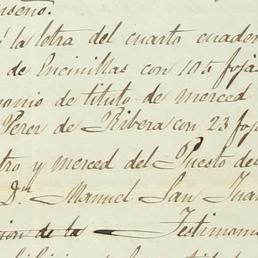 a la letra del cuarto cuader
de Encinillas con 105 foja
monio de titulo de merced
Perez de Ribera con 23 foj
tro y merced del Puesto de
Dn Manuel San Jua
cion de la Testimon